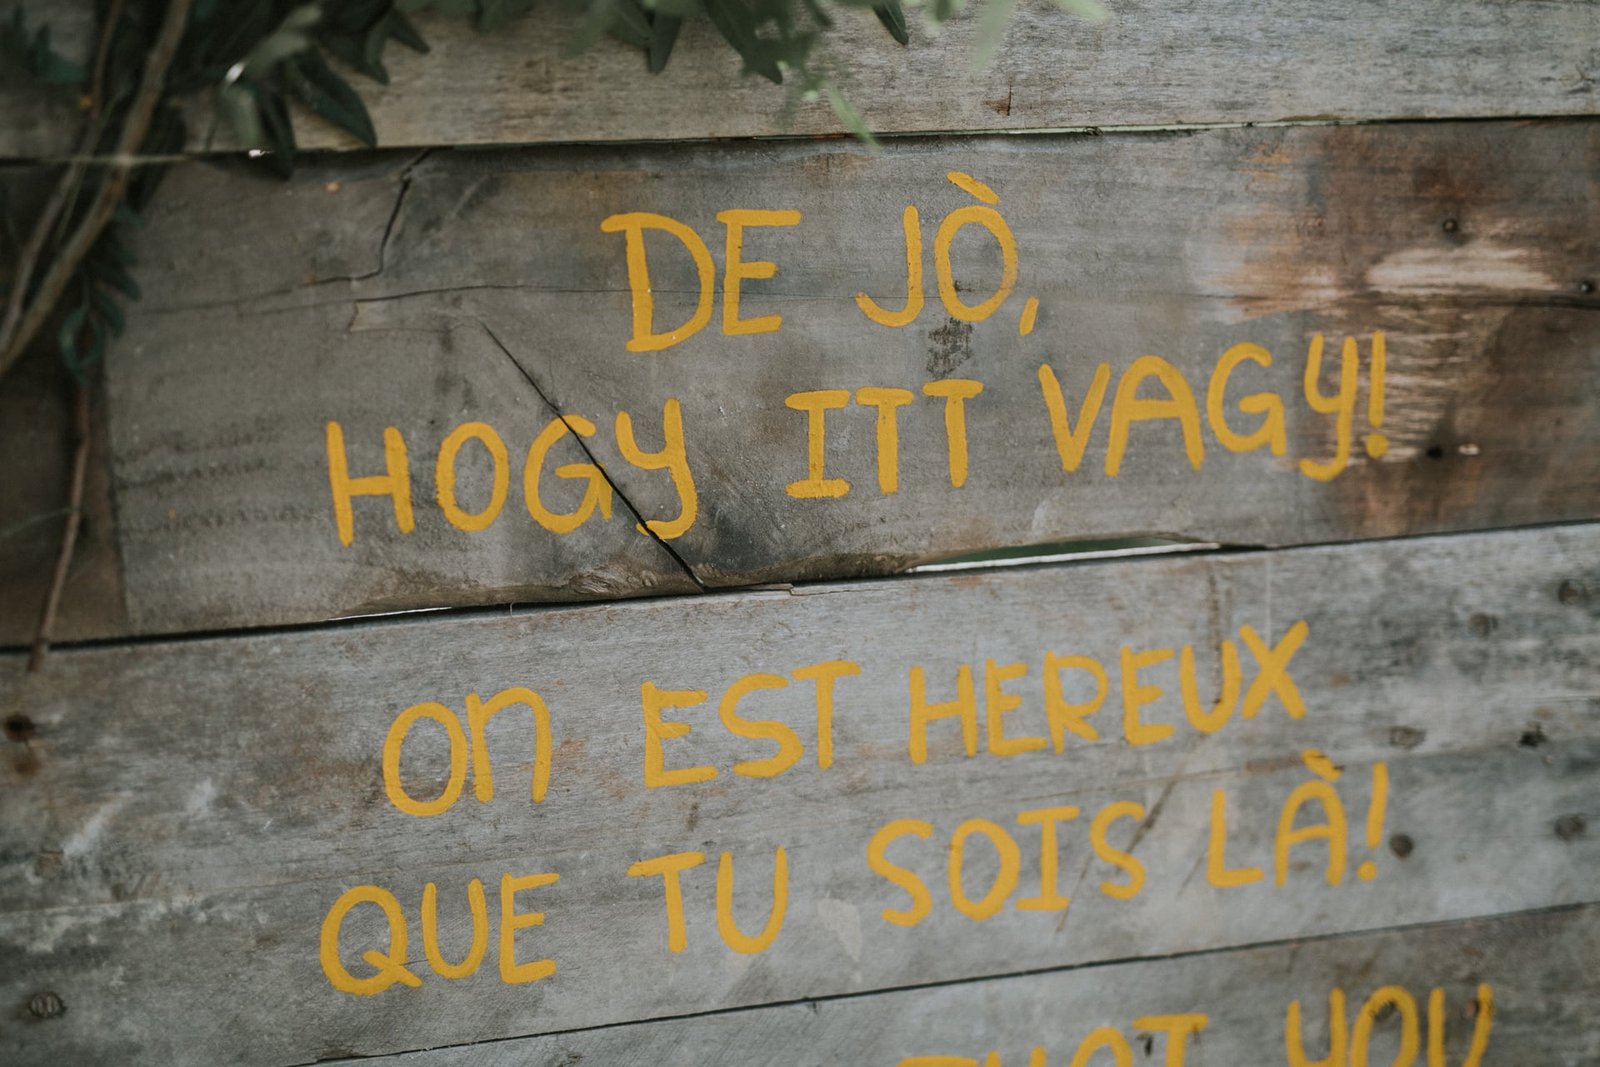 DE JÒ,
HOGY ITT VAGY!
On EST HEREUX
QUE TU SOIS LÀ!
THAT YOU